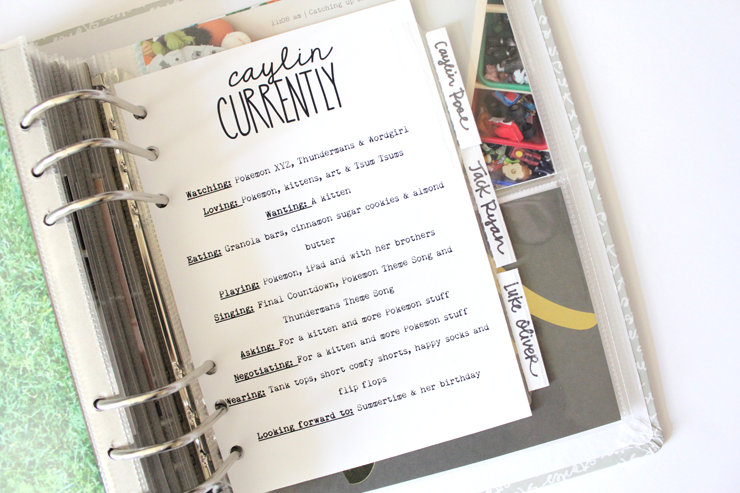 11:08 am | Catching up
caylin
CURRENTLY
Watching: Pokemon XYZ, Thundermans & Wordgirl
Loving: Pokemon, kittens, art & Tsum Tsums
Wanting: A kitten
Eating: Granola bars, cinnamon sugar cookies & almond
butter
Playing: Pokemon, iPad and with her brothers
Singing: Final Countdown, Pokemon Theme Song and
Thundermans Theme Song
Asking: For a kitten and more Pokemon stuff
Negotiating: For a kitten and more Pokemon stuff
Wearing: Tank tops, short comfy shorts, happy socks and
flip flops
Looking forward to: Summertime & her birthday
Caylin Rose
Jack Ryan
Luke Oliver